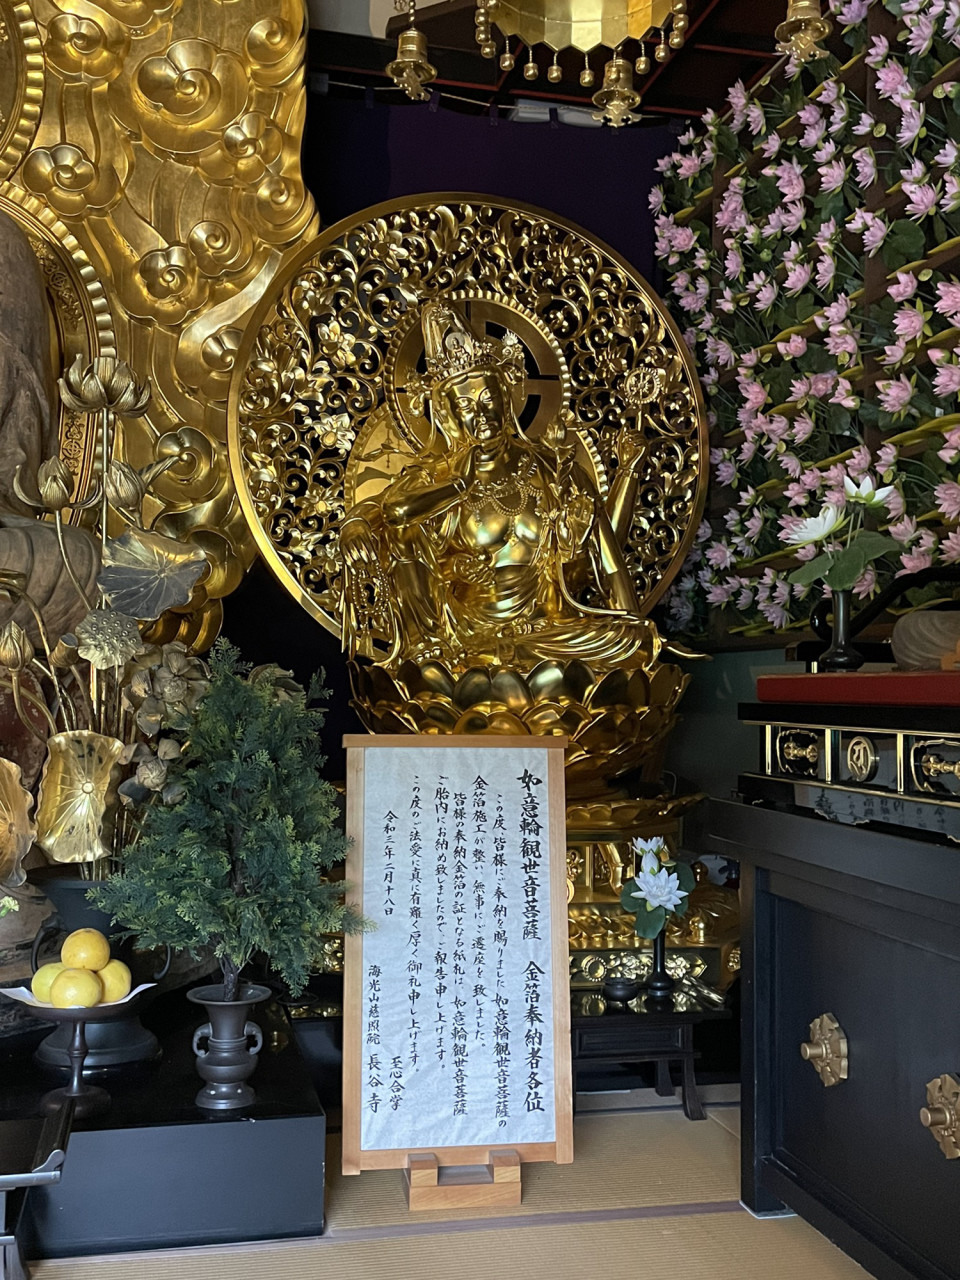 如意輪観世音菩薩　金箔奉納者各位
この度、皆様にご奉納を賜りました如意輪観世音菩薩の
金箔施工が整い、無事にご遷座を致しました。
皆様の奉納金箔の証となる紙札は、如意輪観世音菩薩
ご胎内にお納め致しましたので、ご報告申し上げます。
この度のご法受に真に有難く厚く御礼申し上げます。
至心合掌
令和三年二月十八日
海光山慈照院　長谷寺